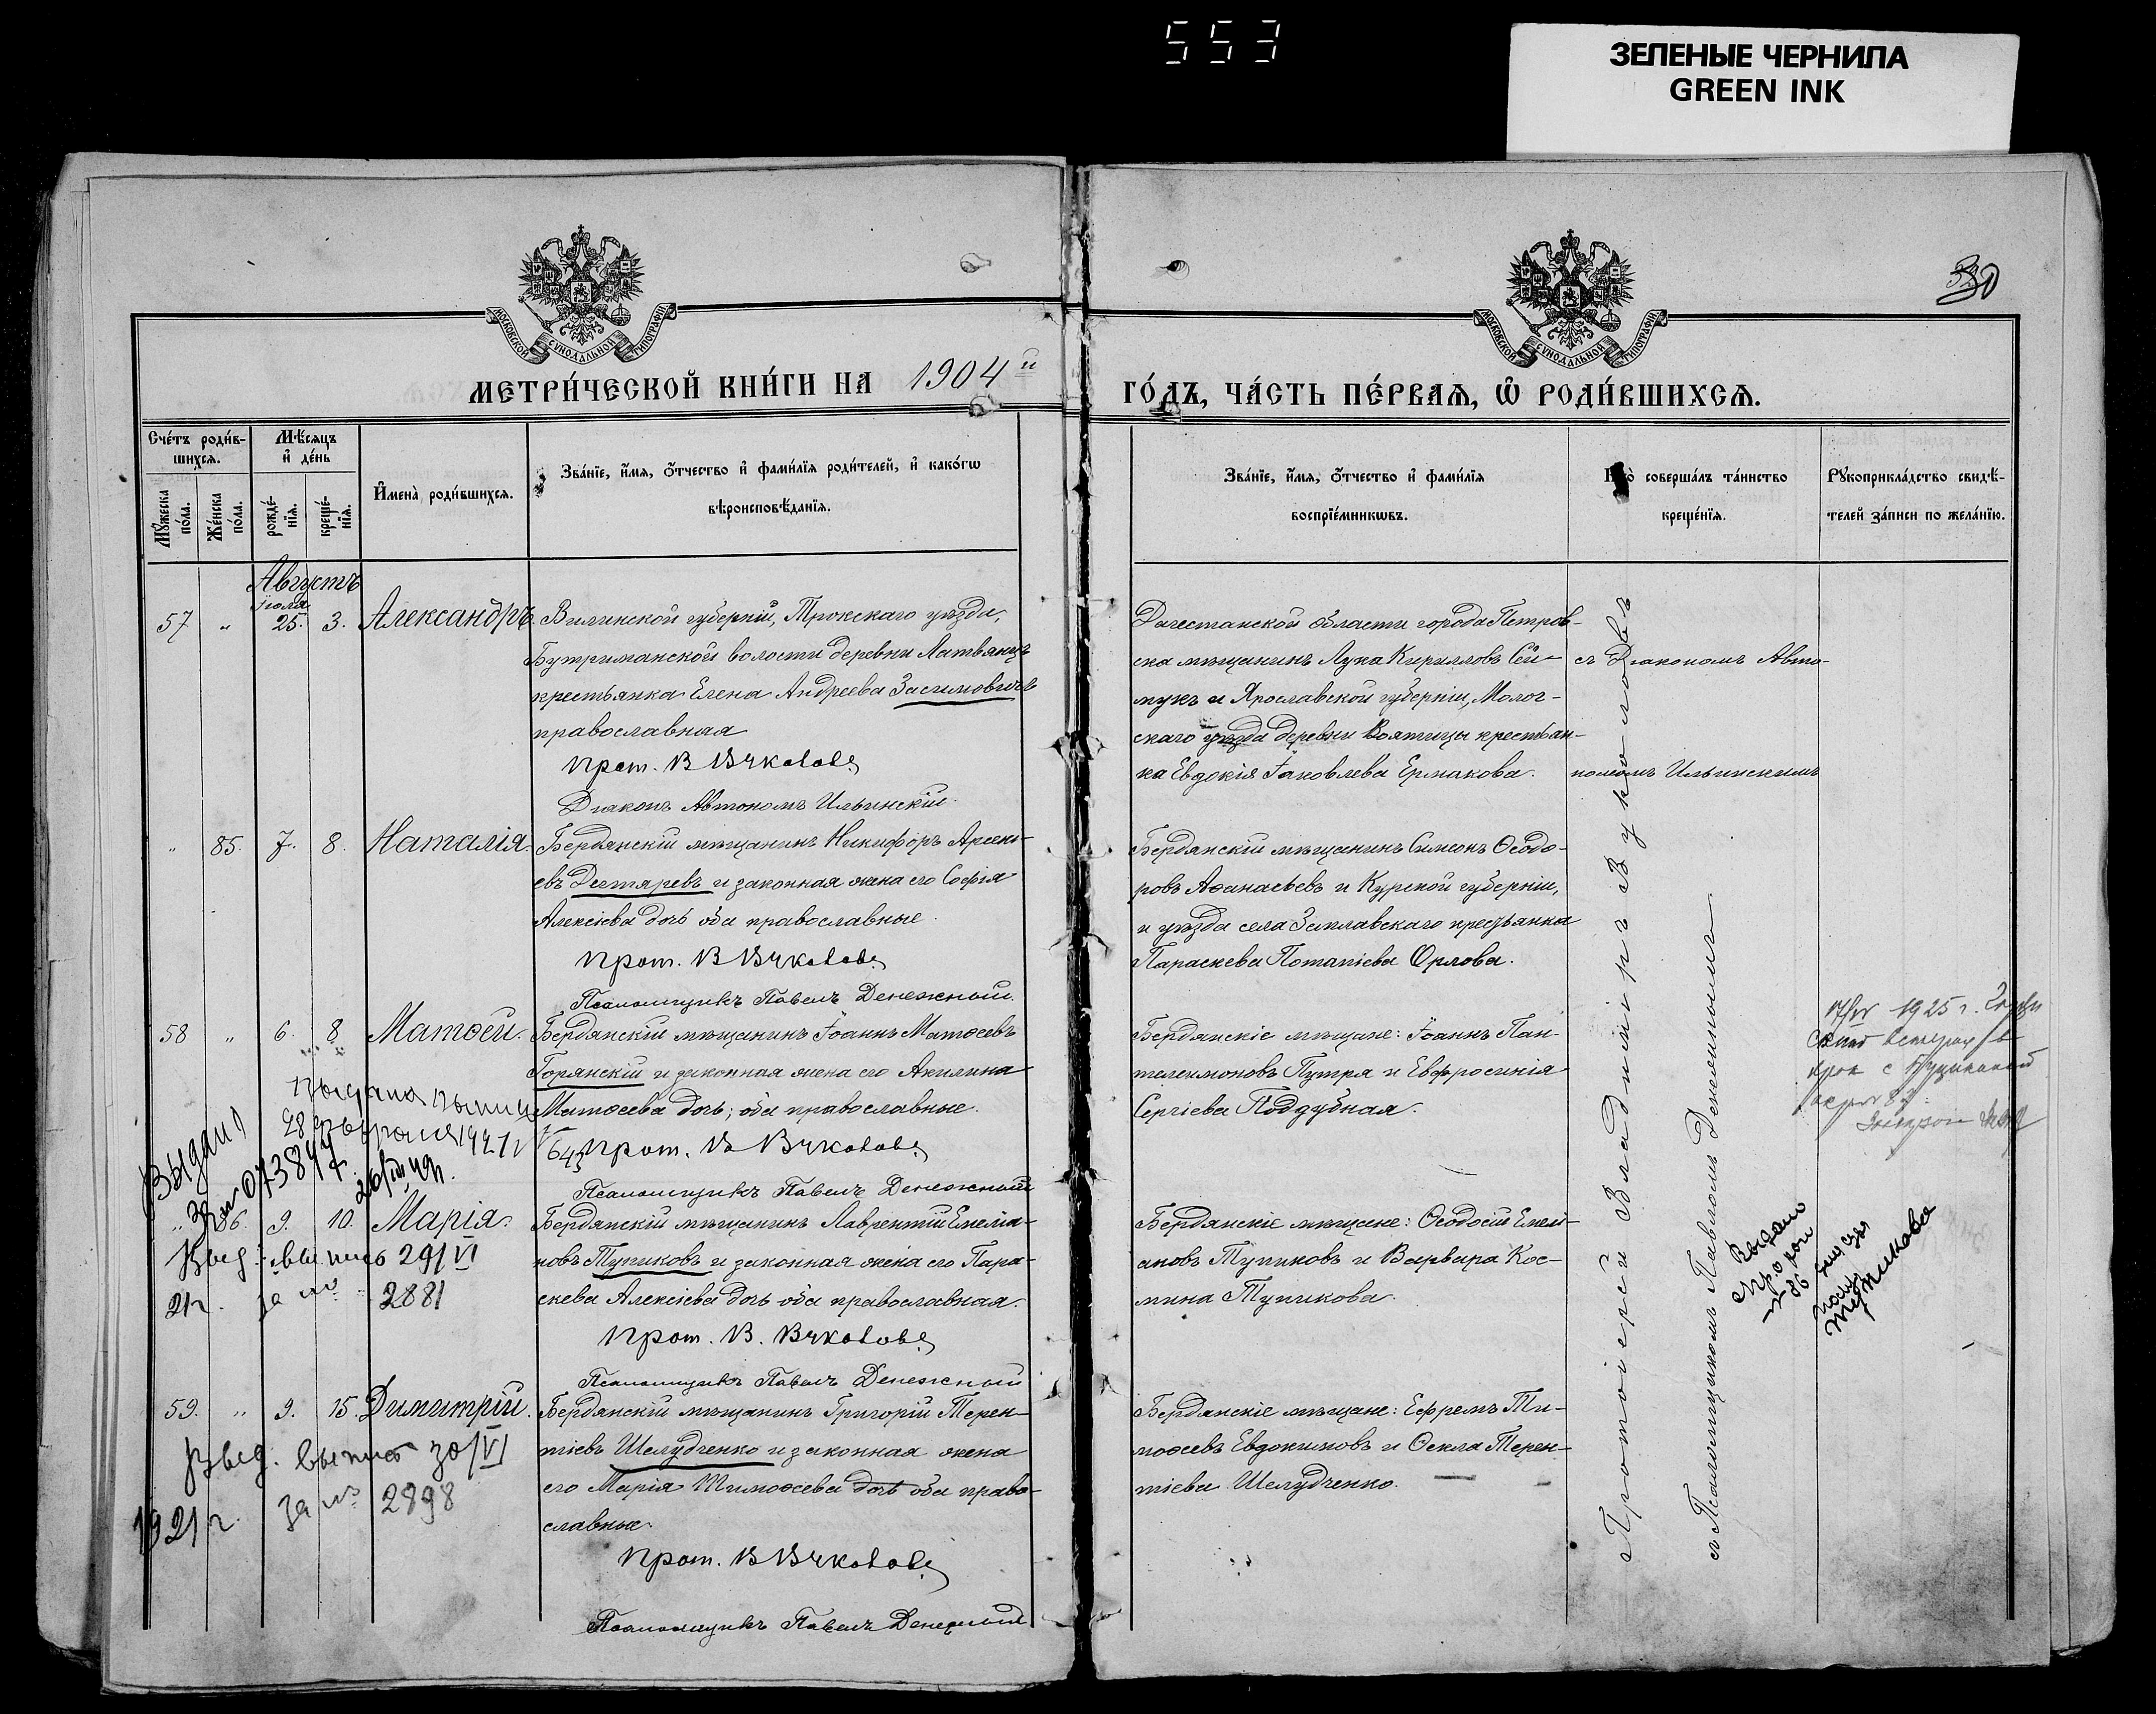 553
ЗЕЛЕНЫЕ ЧЕРНИЛА
GREEN INK
30
МОСКОВСКОЙ СѴНОДАЛЬНОЙ ТИПОГРАФІИ
МОСКОВСКОЙ СѴНОДАЛЬНОЙ ТИПОГРАФІИ
МЕТРИ́ЧЕСКОЙ КНИ́ГИ НА 1904й
ГО́ДЪ, ЧА́СТЬ ПЕ́РВАѦ, Ѡ РОДИ́ВШИХСѦ.
Сче́тъ роди́в-
шихсѧ.
Мѣ́сѧцъ
и҆ де́нь
Мꙋ́жеска по́ла.
Же́нска по́ла.
рожде́-
нїѧ.
креще́-
нїѧ.
И҆мена̀ роди́вшихсѧ.
Зва́нїе, и҆́мѧ, ѻ҆́тчество и҆ фами́лїѧ роди́телей, и҆ како́гѡ
вѣроисповѣ́данїѧ.
Зва́нїе, и҆́мѧ, ѻ҆́тчество и҆ фами́лїѧ
воспрїе́мникѡвъ.
Кто̀ соверша́лъ та́инство
креще́нїѧ.
Рꙋкоприкла́дство свидѣ́-
телей за́писи по жела́нїю.
Августъ
57 " Іюля 25. 3. Александръ.
Виленской губерніи, Трокскаго уѣзда,
Бутриманской волости деревни Матвянцъ
крестьянка Елена Андреева Засимовичъ
православная
Прот. В Вуколовъ
Діаконъ Автономъ Ильинскій.
Дагестанской области города Петров-
ска мѣщанинъ Лука Кирилловъ Сей-
мукъ и Ярославской губерніи, Молог-
скаго уѣзда деревни Вояттицы крестьян-
ка Евдокія Іаковлева Ермакова.
съ Діакономъ Авто-
номомъ Ильинскимъ
" 85. 7. 8. Наталія.
Бердянскій мѣщанинъ Никифоръ Арсень-
евъ Дегтяревъ и законная жена его Софія
Алексіева дочь оба православные.
Прот. В Вуколовъ
Псаломщикъ Павелъ Денежный.
Бердянскій мѣщанинъ Симеонъ Ѳеодо-
ровъ Аѳанасьевъ и Курской губерніи,
и уѣзда села крестьянка
Параскева Потапіева Орлова.
58 " 6. 8 Матѳей.
Бердянскій мѣщанинъ Іоаннъ Матѳеевъ
Горянскій и законная жена его Акилина
Матѳеева дочь; оба православные.
Прот. В Вуколовъ
Псаломщикъ Павелъ Денежный
Бердянскіе мѣщане: Іоаннъ Пан-
телеимоновъ Путря и Евфросинія
Сергіева Поддубная.
1925 г.
28 февраля 1921 г
Выдан
073847
" 86. 9. 10. Марія.
Бердянскій мѣщанинъ Лаврентій Емеліа-
новъ Тупиковъ и законная жена его Пара-
скева Алексіева дочь оба православная.
Прот. В. Вуколовъ
Псаломщикъ Павелъ Денежный
Бердянскіе мѣщане: Ѳеодосій Емелі-
ановъ Тупиковъ и Варвара Кос-
мина Тупикова.
Выд. выпись 29/VI
21 г. за № 2881
59. " 9. 15. Димитрій.
Бердянскій мѣщанинъ Григорій Терен-
тіевъ Шелудченко и законная жена
его Марія Тимоѳеева дочь оба право-
славные.
Прот. В Вуколовъ
Псаломщикъ Павелъ Денежный
Бердянскіе мѣщане: Ефремъ Ти-
моѳеевъ Евдокимовъ и Ѳекла Терен-
тіева Шелудченко.
Выд. выпись 30/VI
1921 г. за № 2898
Протоіерей Владиміръ Вуколовъ
съ Псаломщикомъ Павломъ Денежнымъ